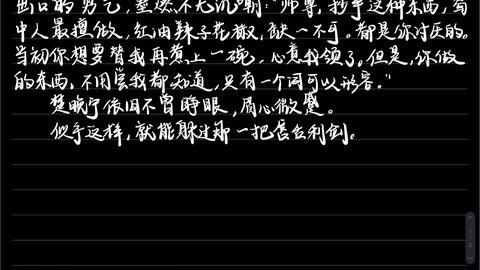 出口的勇气，墨燃不无沉嘲："师尊，抄手这种东西，蜀
中人最擅做，红油辣子花椒，缺一不可。都是你讨厌的。
当初你想要替我再煮上一碗，心意我领了。但是，你做
的东西，不用尝我都知道，只有一个词可以形容。"
楚晚宁依旧不曾睁眼，眉心微蹙。
似乎这样，就能躲过那一把唇舌利剑。
1/2